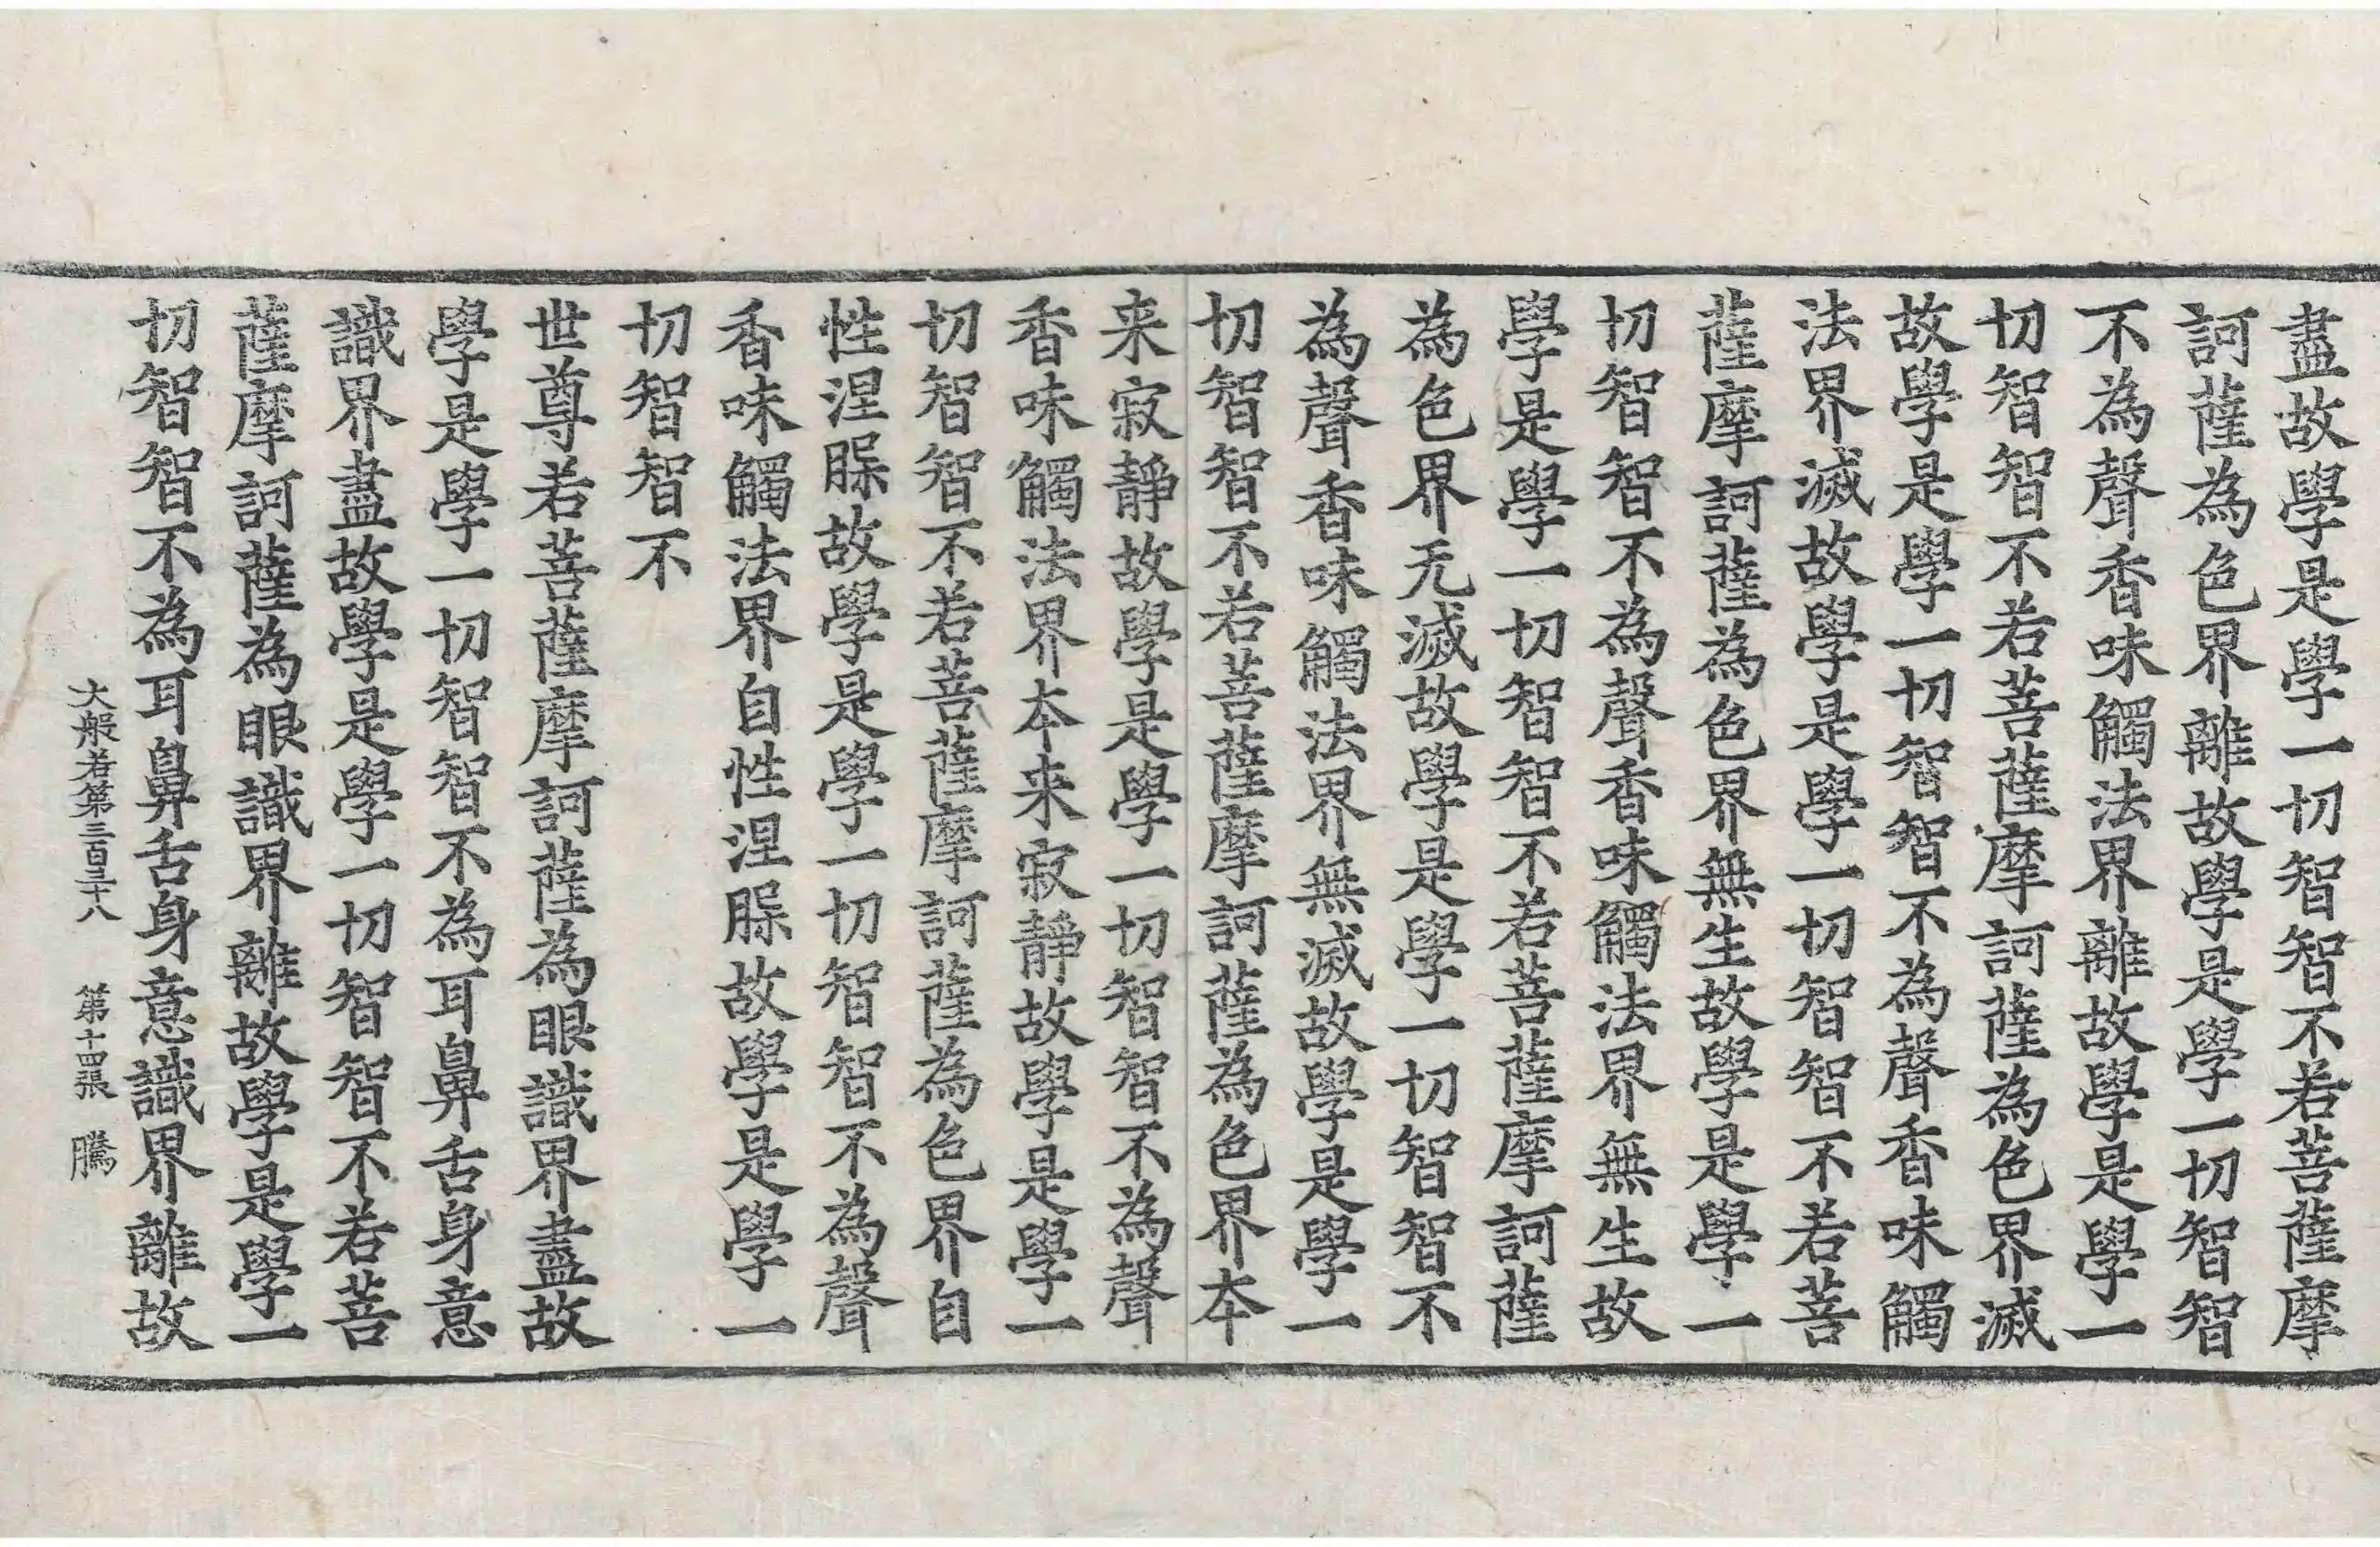 盡故學是學一切智智不若菩薩摩
訶薩為色界離故學是學一切智智
不為聲香味觸法界離故學是學一
切智智不若菩薩摩訶薩為色界滅
故學是學一切智智不為聲香味觸
法界滅故學是學一切智智不若菩
薩摩訶薩為色界無生故學是學一
切智智不為聲香味觸法界無生故
學是學一切智智不若菩薩摩訶薩
為色界无滅故學是學一切智智不
為聲香味觸法界無滅故學是學一
切智智不若菩薩摩訶薩為色界本
来寂靜故學是學一切智智不為聲
香味觸法界本来寂靜故學是學一
切智智不若菩薩摩訶薩為色界自
性涅脲故學是學一切智智不為聲
香味觸法界自性涅脲故學是學一
切智智不
世尊若菩薩摩訶薩為眼識界盡故
學是學一切智智不為耳鼻舌身意
識界盡故學是學一切智智不若菩
薩摩訶薩為眼識界離故學是學一
切智智不為耳鼻舌身意識界離故
大般若第三百三十八 第十四張 騰